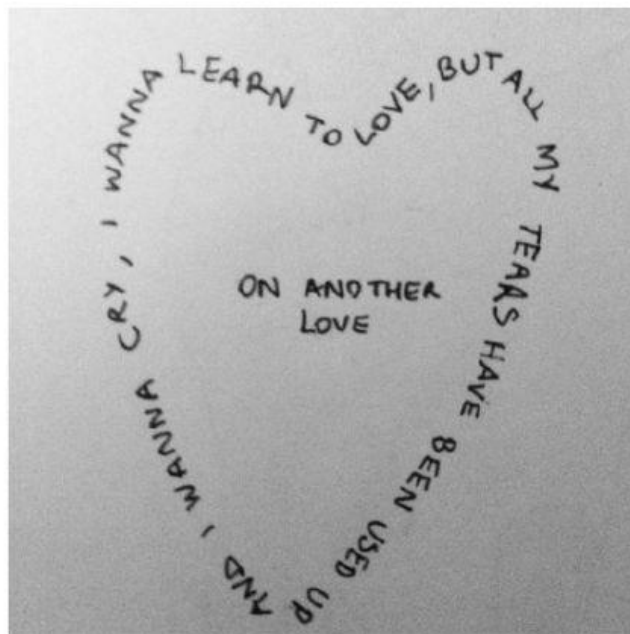 AND I WANNA CRY, I WANNA LEARN TO LOVE, BUT ALL MY TEARS HAVE BEEN USED UP
ON ANOTHER
LOVE